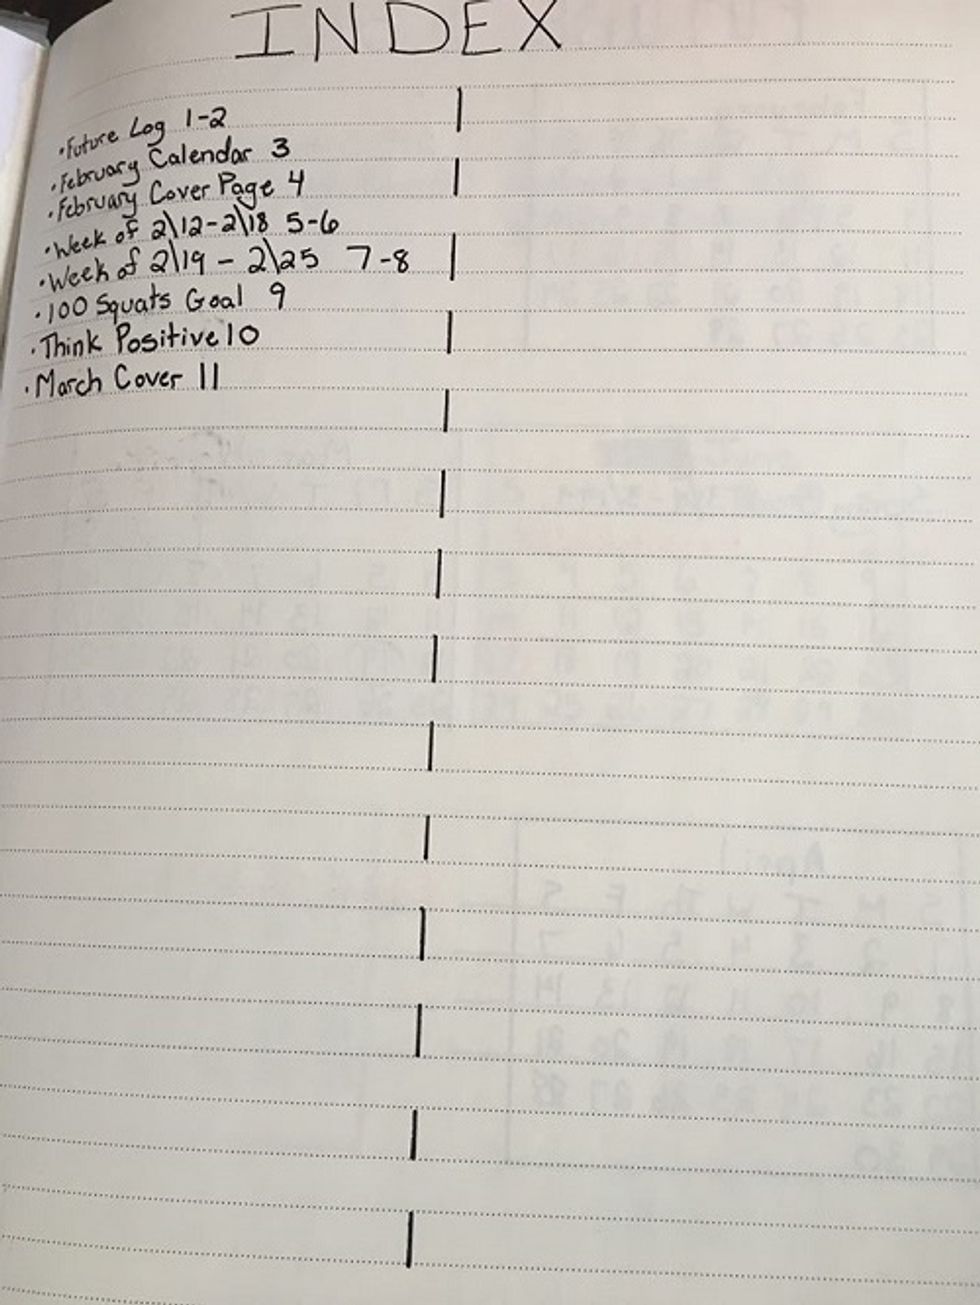 INDEX
·Future Log 1-2
·February Calendar 3
·February Cover Page 4
·Week of 2\12-2\18 5-6
·Week of 2\19 - 2\25 7-8
·100 Squats Goal 9
·Think Positive 10
·March Cover 11